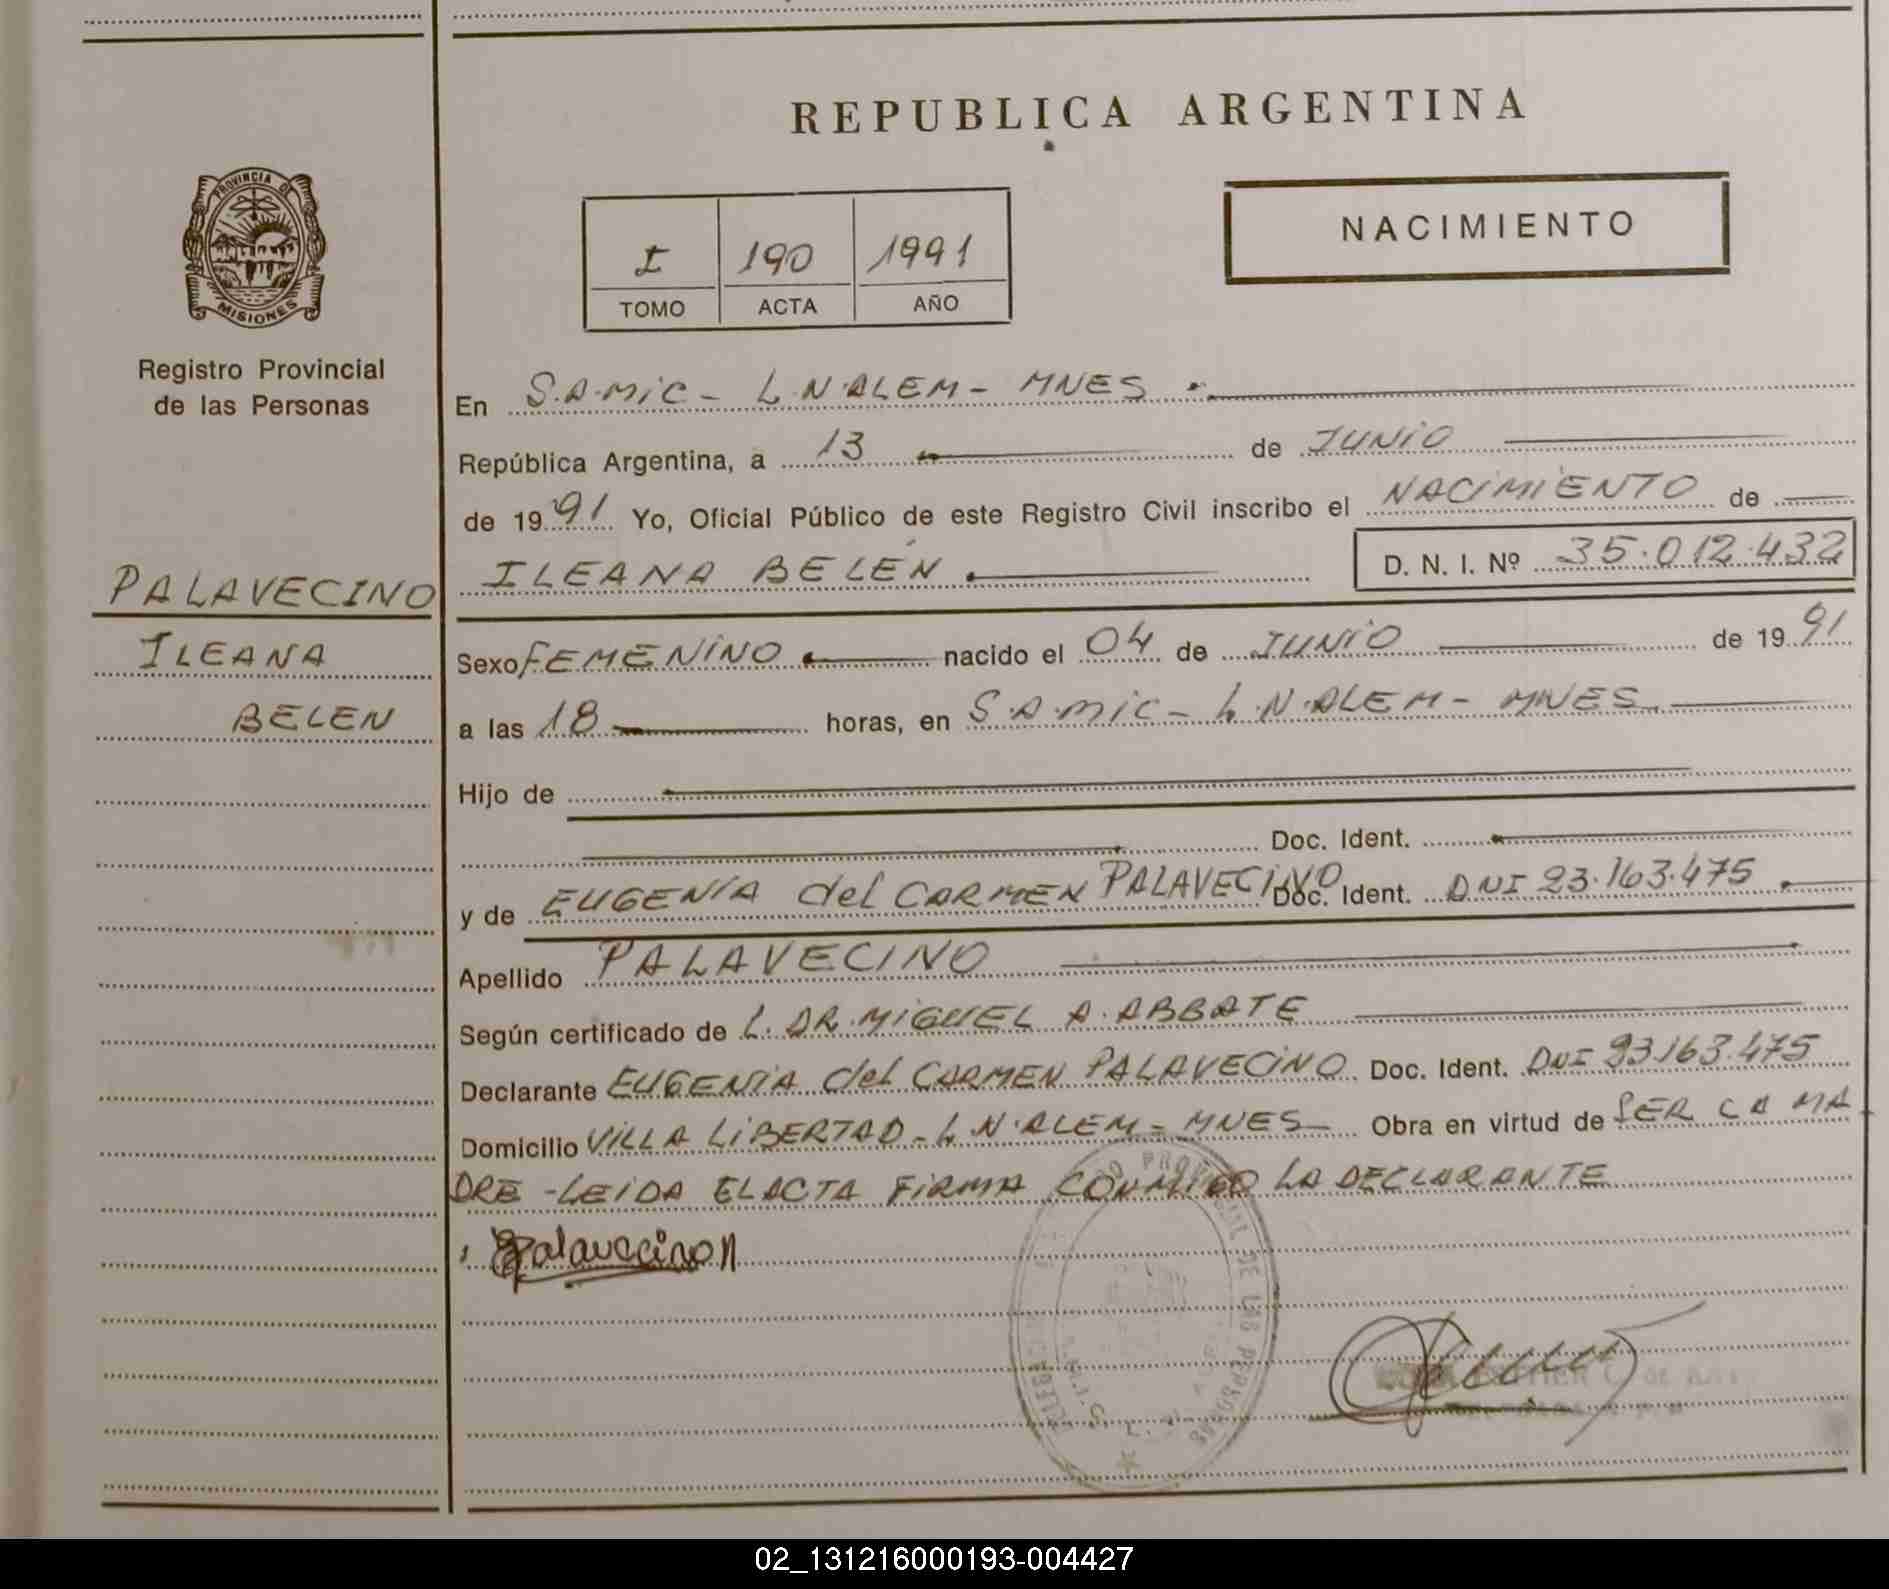 REPUBLICA ARGENTINA
PROVINCIA DE MISIONES
Registro Provincial
de las Personas
I 190 1991
TOMO ACTA AÑO
NACIMIENTO
En S.A.MIC - L.N.ALEM - MNES
República Argentina, a 13 de JUNIO
de 1991 Yo, Oficial Público de este Registro Civil inscribo el NACIMIENTO de
ILEANA BELÉN D. N. I. Nº 35.012.432
PALAVECINO
ILEANA
BELEN
Sexo FEMENINO nacido el 04 de JUNIO de 1991
a las 18 horas, en S.A.MIC - L.N.ALEM - MNES
Hijo de
Doc. Ident.
y de EUGENIA del CARMEN PALAVECINO Doc. Ident. DNI 23.163.475
Apellido PALAVECINO
Según certificado de L. DR. MIGUEL A. ABBATE
Declarante EUGENIA del CARMEN PALAVECINO Doc. Ident. DNI 93.163.475
Domicilio VILLA LIBERTAD - L.N.ALEM - MNES Obra en virtud de SER LA MA
DRE - LEIDA EL ACTA FIRMA CONMIGO LA DECLARANTE
Palavecino
PROVINCIAL DE LAS PERSONAS
02_131216000193-004427